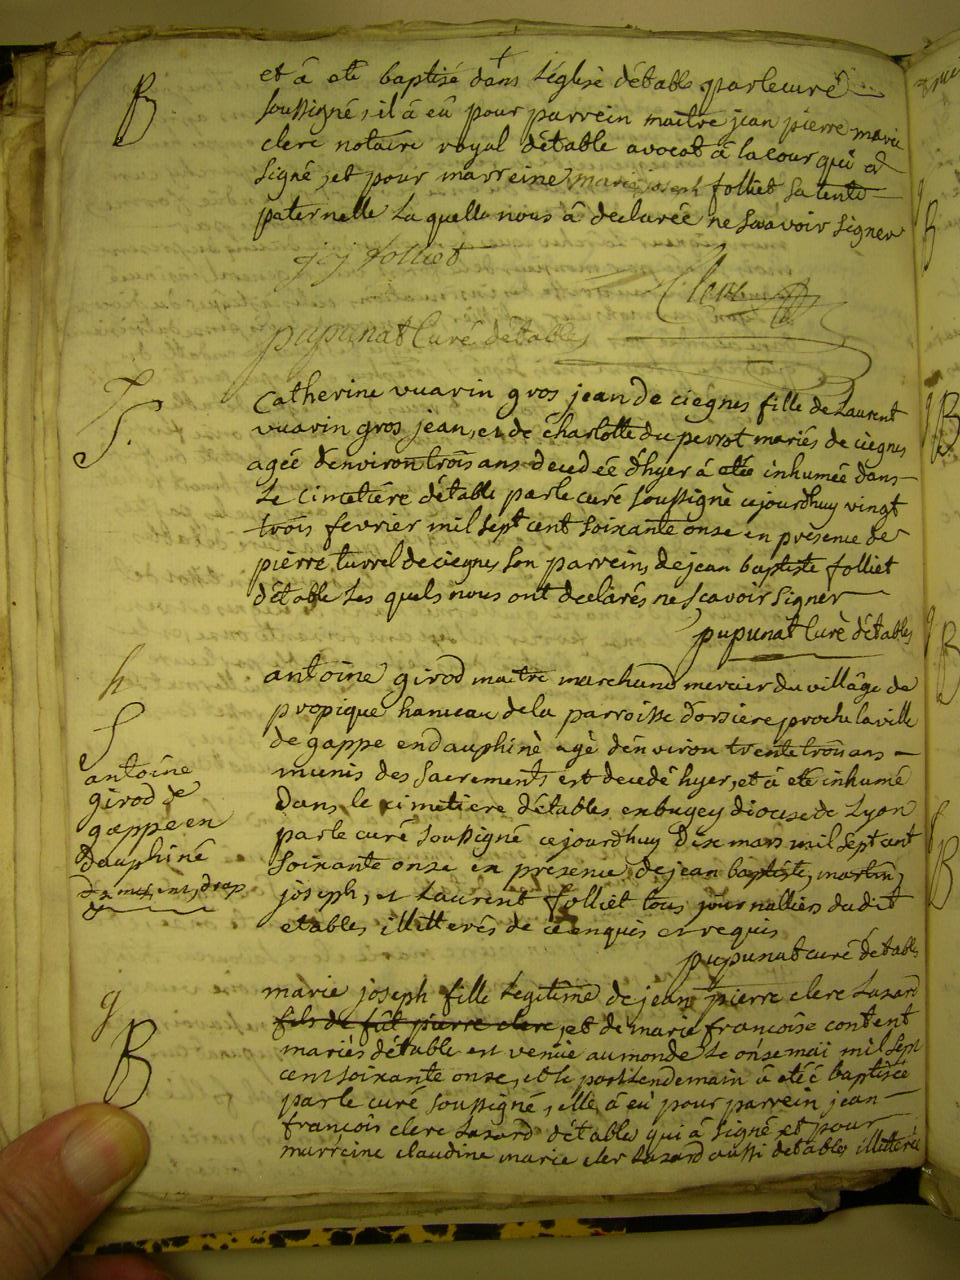 B
et â eté baptisé dans l'église d'étable par le curé
soussigné, il â eû pour parrein maitre jean pierre marie
clerc notaire royal d'étable avocat â la cour qui â
signé, et pour marreine marie joseph folliet sa tente
paternelle la quelle nous â declarée ne scavoir signer
j j folliet
Clerc
pupunat Curé d'étables
S.
Catherine vuarin gros jean de ciegnes fille de Laurent
vuarin gros jean, et de charlotte du perrot mariés de ciegnes
agée d'environ trois ans decedée d'hyer â eteé inhumée dans
Le cimetiére d'étable par le curé soussigné ce jourd'huy vingt
trois fevrier mil sept cent soixante onse en présence de
pierre turrel de ciegnes son parrein, de jean baptiste folliet
d'étable Les quels nous ont declarés ne scavoir signer
pupunat Curè d'étables
h
S
antoine
girod de
gappe en
dauphiné
antoine girod maitre marchand mercier du villâge de
propique hameau de la parroisse d'orsiere proche la ville
de gappe en dauphinè agé d'environ trente trois ans
munis des sacrements est decedé hyer, et â eté inhumé
dans le cimetiere d'étables en bugey diocese de Lyon
par le curé soussigné ce jourd'huy dix mars mil sept cent
soixante onse en presence de jean baptiste, martin,
joseph, et Laurent folliet tous journalliers dudit
etables illitterés de ce enquis et requis
pupunat curé d'étable
g
B
marie joseph fille Legitime de jean pierre clerc Lazard
fils de fût pierre clerc, et de marie francoise content
mariés d'étable est venüe au monde le onse mai mil sept
cent soixante onse, et le lendemain â etéé baptisée
par le curé soussigné, elle â eû pour parrein jean
francois clerc Lazard d'étable qui â signé et pour
marreine claudine marie cler Lazard aussi d'etables illitterée